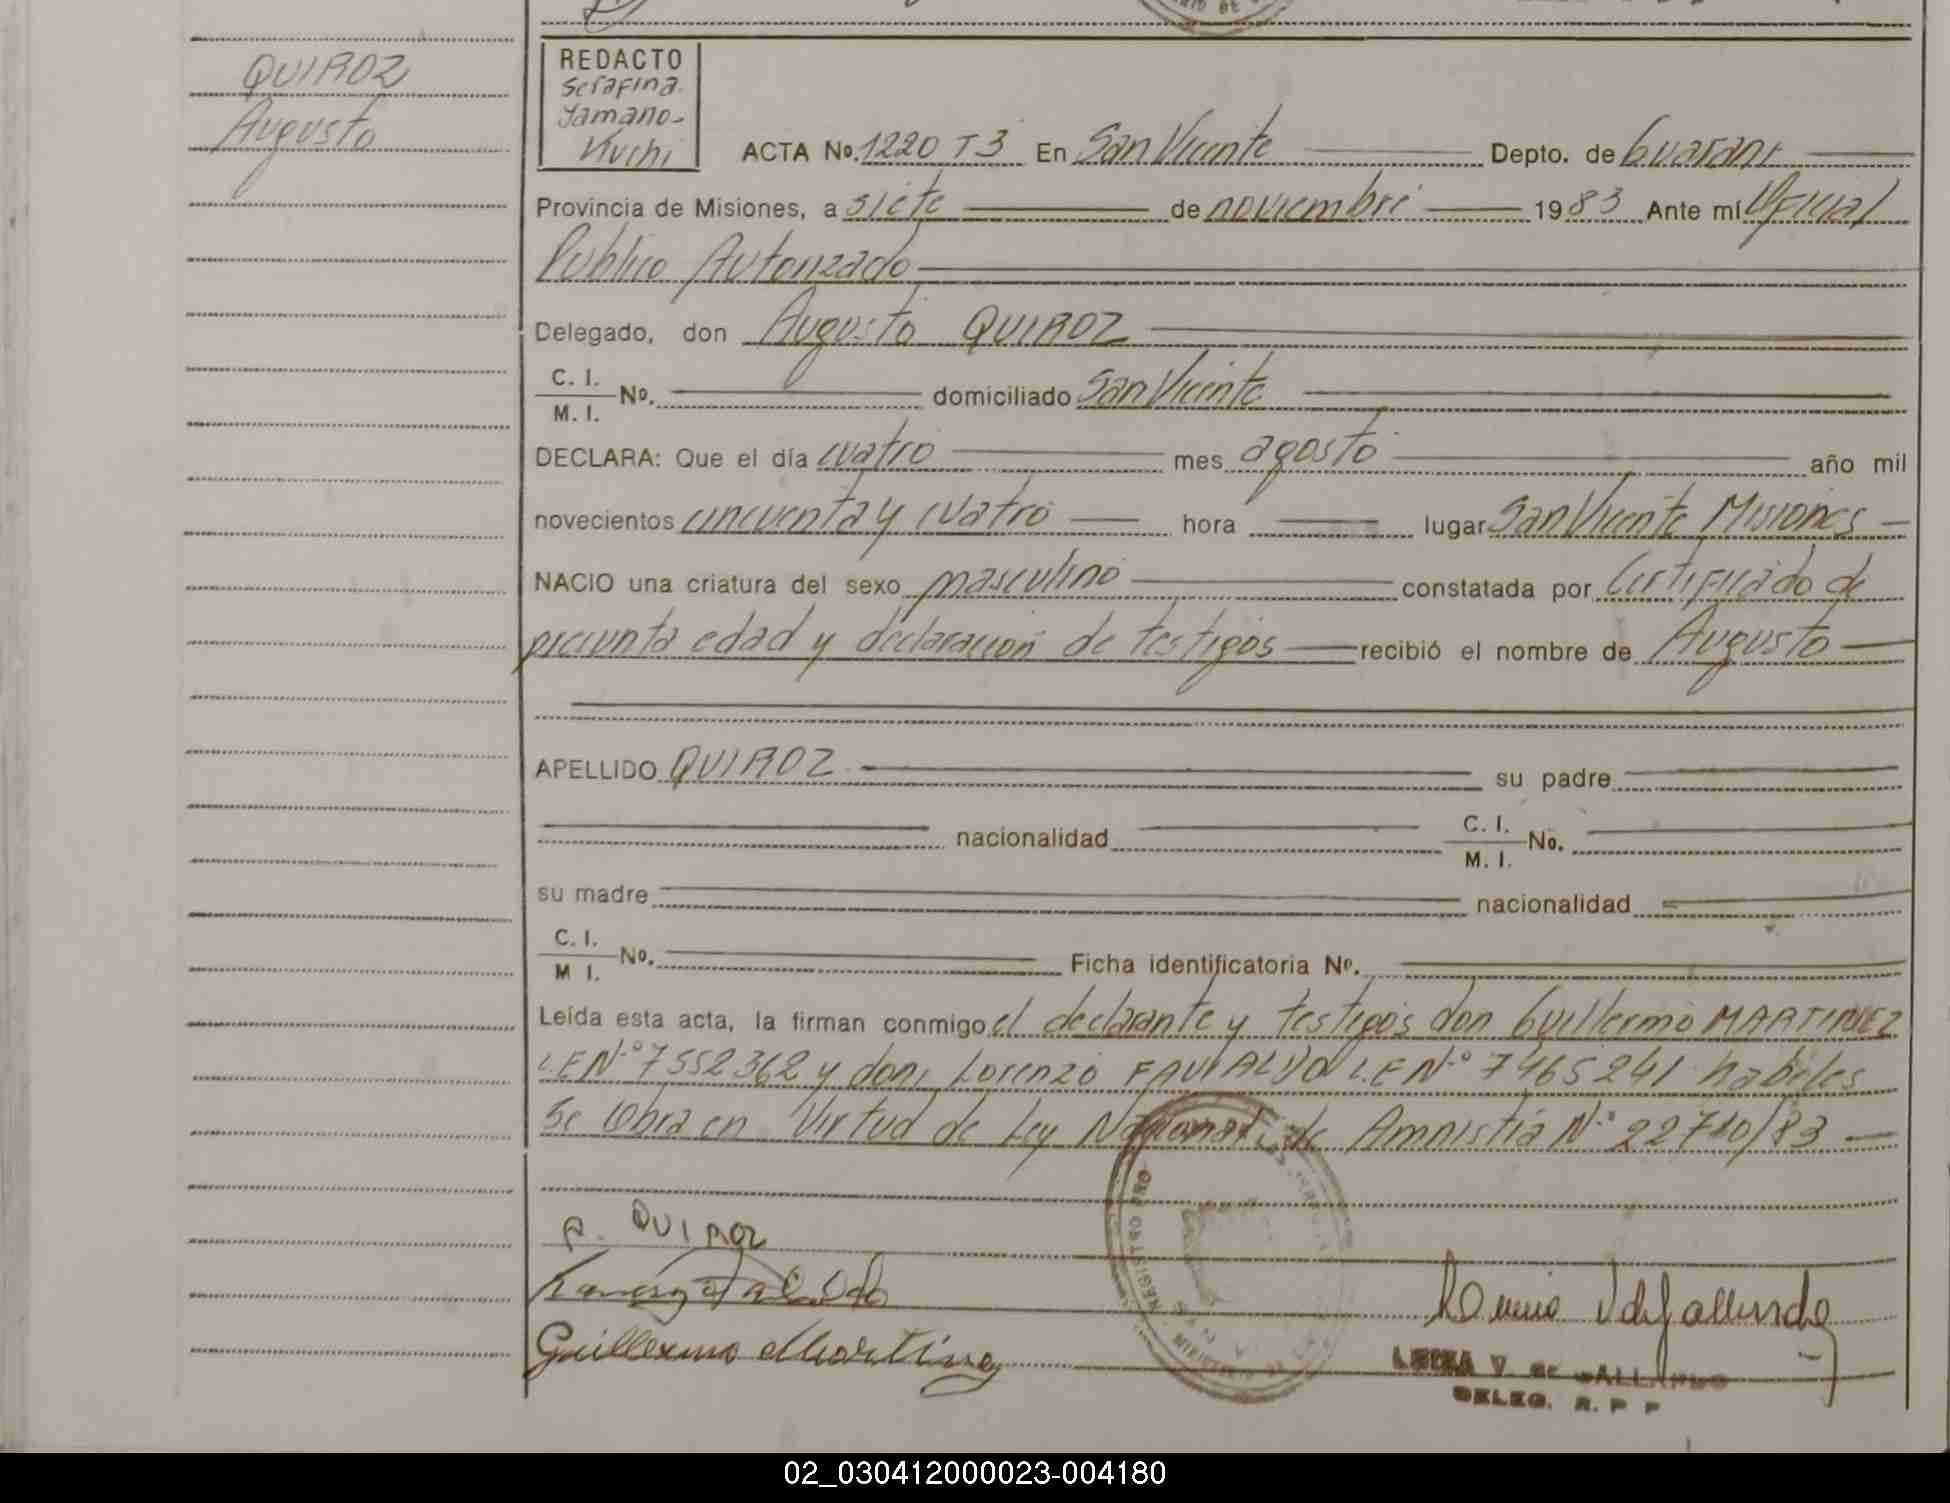 QUIROZ
Augusto
REDACTO
Serafina
Yamano-
Kuchi
ACTA No. 1220 T3 En San Vicente Depto. de Guarani
Provincia de Misiones, a siete de noviembre 1983 Ante mí Oficial
Publico Autorizado
Delegado, don Augusto QUIROZ
C. I.
M. I. No. domiciliado San Vicente
DECLARA: Que el día cuatro mes agosto año mil
novecientos cincuenta y cuatro hora lugar San Vicente Misiones
NACIO una criatura del sexo masculino constatada por Certificado de
presunta edad y declaración de testigos recibió el nombre de Augusto
APELLIDO QUIROZ su padre
nacionalidad C. I.
M. I. No.
su madre nacionalidad
C. I.
M I. No. Ficha identificatoria No.
Leída esta acta, la firman conmigo el declarante y testigos don Guillermo MARTINEZ
L.E N° 7552362 y don Lorenzo L.E N° 7465241 habiles
Se Obra en Virtud de Ley Nacional de Amnistia N° 22710/83
A. QUIROZ
Guillermo Martinez
V de Gallardo
V. de GALLARDO
DELEG. R. P P
02_030412000023-004180